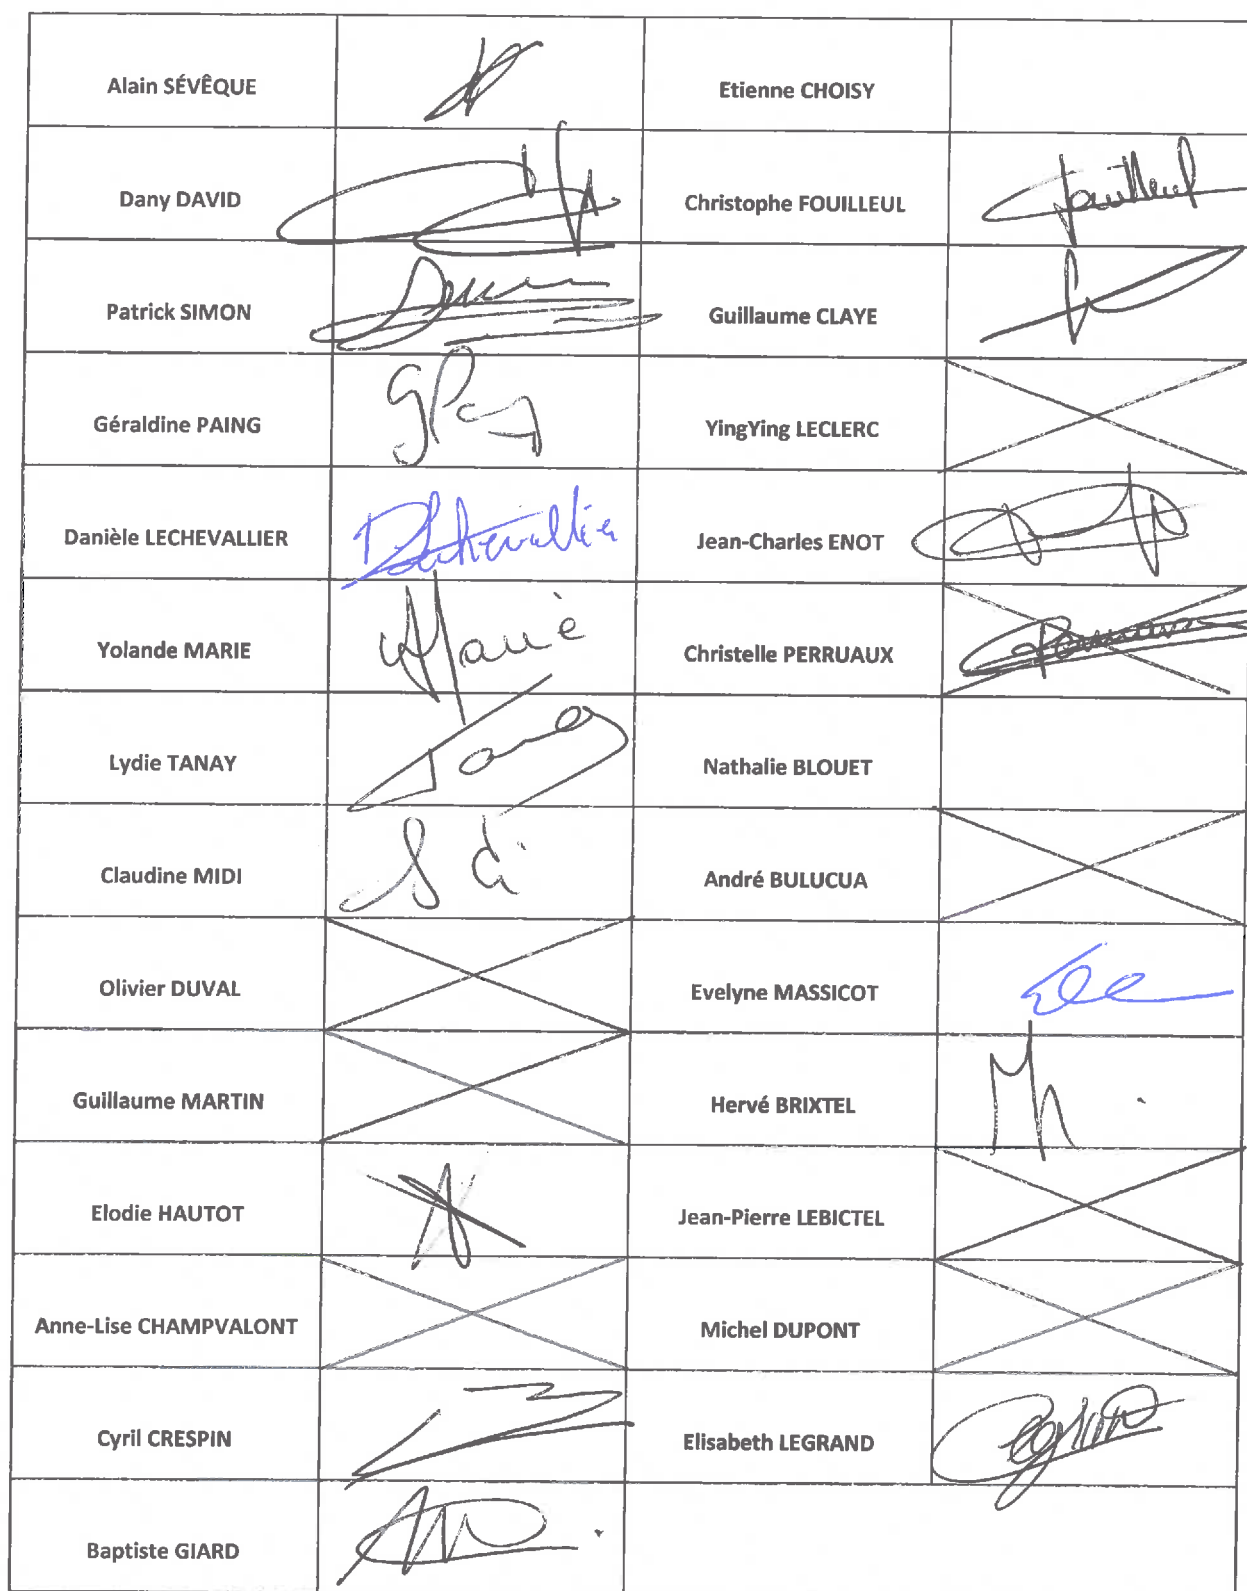 Alain SÉVÊQUE Etienne CHOISY
Dany DAVID Christophe FOUILLEUL Fouilleul
Patrick SIMON Guillaume CLAYE
Géraldine PAING YingYing LECLERC
Danièle LECHEVALLIER DLechevallier Jean-Charles ENOT
Yolande MARIE Marie Christelle PERRUAUX
Lydie TANAY Nathalie BLOUET
Claudine MIDI André BULUCUA
Olivier DUVAL Evelyne MASSICOT
Guillaume MARTIN Hervé BRIXTEL
Elodie HAUTOT Jean-Pierre LEBICTEL
Anne-Lise CHAMPVALONT Michel DUPONT
Cyril CRESPIN Elisabeth LEGRAND
Baptiste GIARD